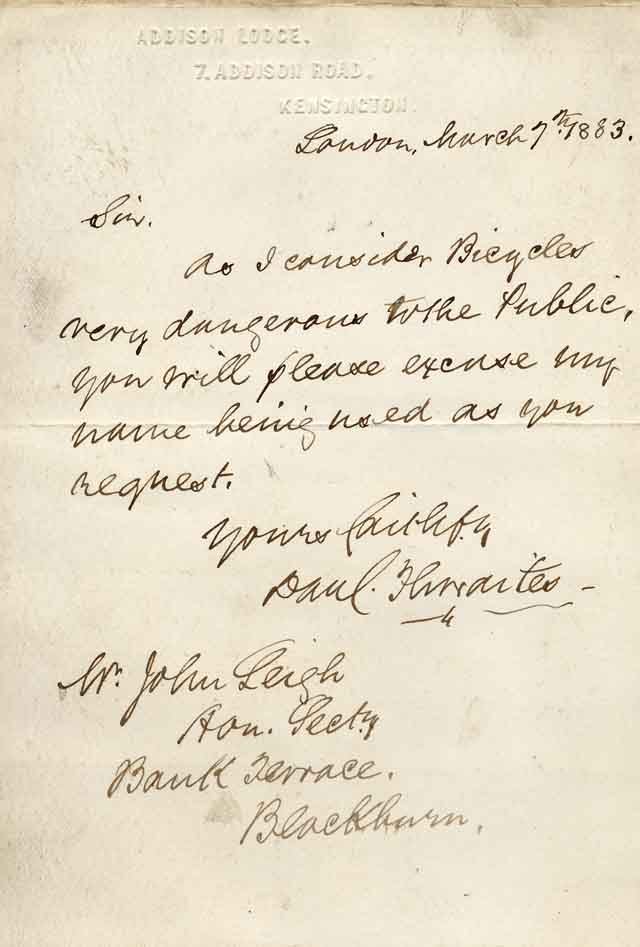 ADDISON LODGE.
7. ADDISON ROAD.
KENSINGTON.
London, March 7th. 1883.
Sir.
As I consider Bicycles
very dangerous to the Public,
you will please excuse my
name being used as you
request.
Yours faithfy
Danl. Thwaites -
Mr. John Leigh
Hon. Secty
Bank Terrace.
Blackburn.